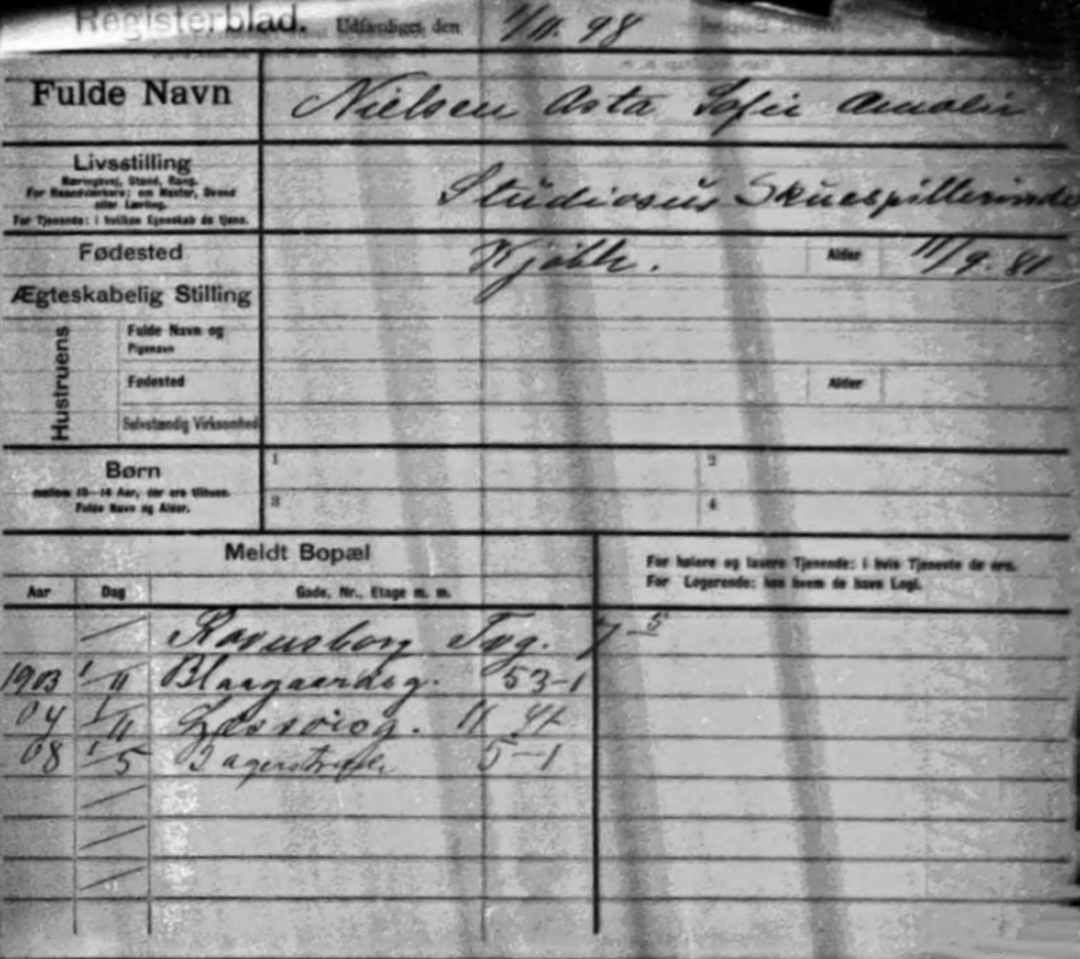 Registerblad. Udfærdiget den 1/11. 98
Fulde Navn Nielsen Asta Sofie Amalie
Livsstilling Studiosus Skuespillerinde
Næringsvej, Stand, Rang.
For Haandværkere: om Mester, Svend
eller Lærling.
For Tjenende: i hvilken Egenskab de tjene.
Fødested Kjøbh. Alder 11/9. 81
Ægteskabelig Stilling
Hustruens
Fulde Navn og
Pigenavn
Fødested Alder
Selvstændig Virksomhed
Børn 1 2
mellem 10-14 Aar, der ere tilhuse.
Fulde Navn og Alder. 3 4
Meldt Bopæl
For højere og lavere Tjenende: i hvis Tjeneste de ere.
For Logerende: hos hvem de have Logi.
Aar Dag Gade, Nr., Etage m. m.
Ravnsborg Tvg. 7-5
1903 1/11 Blaagaardsg. 53-1
04 1/11 Læssøesg. 11 4
08 1/5 Bagerstræde 5-1